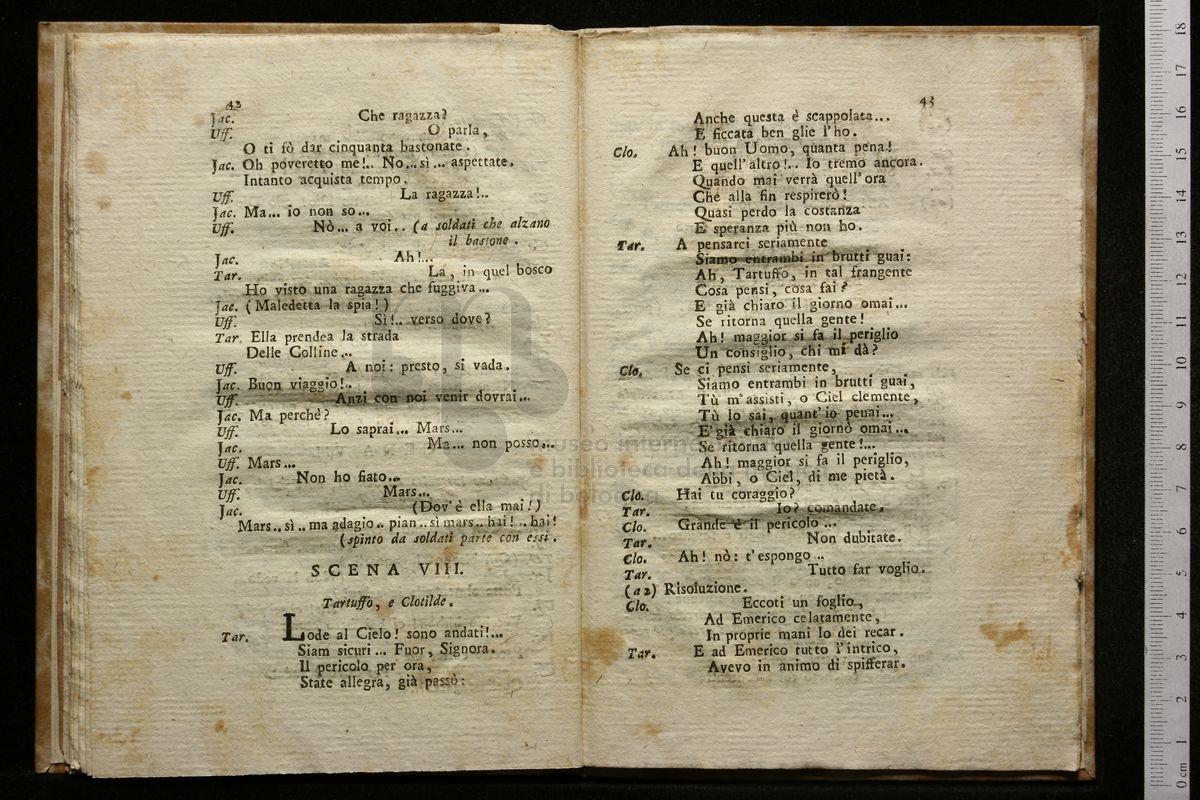 43
Jac. Che ragazza?
Uff. O parla,
O ti fò dar cinquanta bastonate.
Jac. Oh poveretto me!.. No... sì... aspettate.
Intanto acquista tempo.
Uff. La ragazza!..
Jac. Ma... io non so...
Uff. Nò... a voi.. (a soldati che alzano
il bastone.
Jac. Ah!...
Tar. La, in quel bosco
Ho visto una ragazza che fuggiva...
Jac. (Maledetta la spia!)
Uff. Sì!.. verso dove?
Tar. Ella prendea la strada
Delle Colline...
Uff. A noi: presto, si vada.
Jac. Buon viaggio!..
Uff. Anzi con noi venir dovrai...
Jac. Ma perchè?
Uff. Lo saprai... Mars...
Jac. Ma... non posso...
Uff. Mars...
Jac. Non ho fiato...
Uff. Mars...
Jac. (Dov'è ella mai!)
Mars.. sì.. ma adagio.. pian.. sì mars.. hai!.. hai!
(spinto da soldati parte con essi.
SCENA VIII.
Tartuffo, e Clotilde.
Tar. Lode al Cielo! sono andati!...
Siam sicuri... Fuor, Signora.
Il pericolo per ora,
State allegra, già passò:
43
Anche questa è scappolata...
E ficcata ben glie l'ho.
Clo. Ah! buon Uomo, quanta pena!
E quell'altro!.. Io tremo ancora.
Quando mai verrà quell'ora
Che alla fin respirerò!
Quasi perdo la costanza
E speranza più non ho.
Tar. A pensarci seriamente
Siamo entrambi in brutti guai:
Ah, Tartuffo, in tal frangente
Cosa pensi, cosa fai?
E già chiaro il giorno omai...
Se ritorna quella gente!
Ah! maggior si fa il periglio
Un consiglio, chi mi dà?
Clo. Se ci pensi seriamente,
Siamo entrambi in brutti guai,
Tù m'assisti, o Ciel clemente,
Tù lo sai, quant'io penai...
E' già chiaro il giornò omai...
Se ritorna quella gente!...
Ah! maggior si fa il periglio,
Abbi, o Ciel, di me pietà.
Clo. Hai tu coraggio?
Tar. Io? comandate.
Clo. Grande è il pericolo...
Tar. Non dubitate.
Clo. Ah! nò: t'espongo..
Tar. Tutto far voglio.
(a 2) Risoluzione.
Clo. Eccoti un foglio,
Ad Emerico celatamente,
In proprie mani lo dei recar.
Tar. E ad Emerico tutto l'intrico,
Avevo in animo di spifferar.